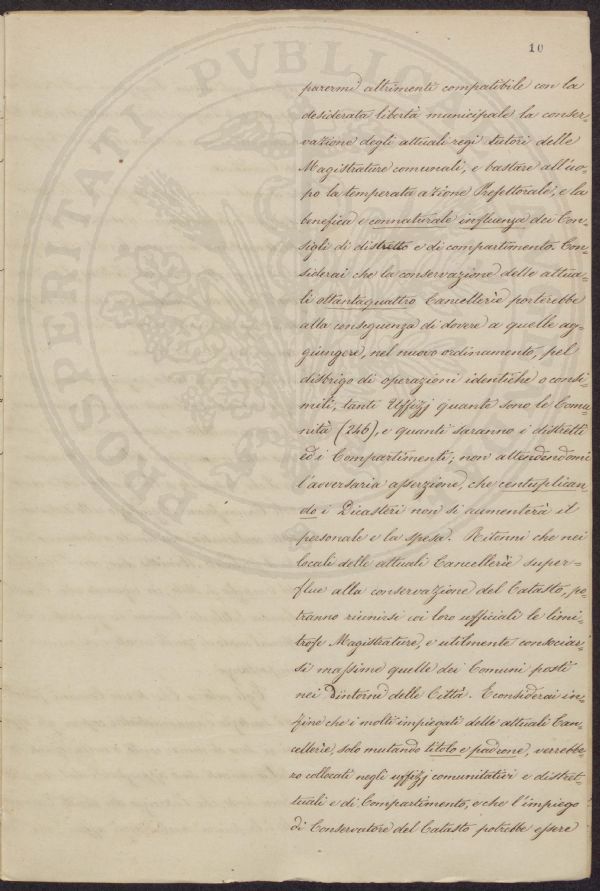 PROSPERITATI PVBLICAE
10
parermi altrimenti compatibile con la
desiderata libertà municipale la conser-
vazione degli attuali regi tutori delle
Magistrature comunali, e bastare all'uo-
po la temperata azione Prefettorale, e la
benefica e connaturale influenza dei Con-
sigli di distretto e di compartimento. Con-
siderai che la conservazione delle attua-
li ottantaquattro Cancellerie porterebbe
alla conseguenza di dovere a quelle ag-
giungere, nel nuovo ordinamento, pel
disbrigo di operazioni identiche o consi-
mili, tanti Uffizj quante sono le Comu-
nità (246), e quanti saranno i distretti
ed i Compartimenti; non attendendomi
l'avversaria asserzione, che centuplican-
do i Dicasteri non si aumenterà il
personale e la spesa. Ritenni che nei
locali delle attuali Cancellerie super-
flue alla conservazione del Catasto, po-
tranno riunirsi coi loro ufficiali le limi-
trofe Magistrature, e utilmente consociar-
si massime quelle dei Comuni posti
nei Dintorni delle Città. E considerai in-
fine che i molti impiegati delle attuali Can-
cellerie, solo mutando titolo e padrone, verrebbe-
ro collocati negli uffizj comunitativi e distret-
tuali e di Compartimento, e che l'impiego
di Conservatore del Catasto potrebbe essere